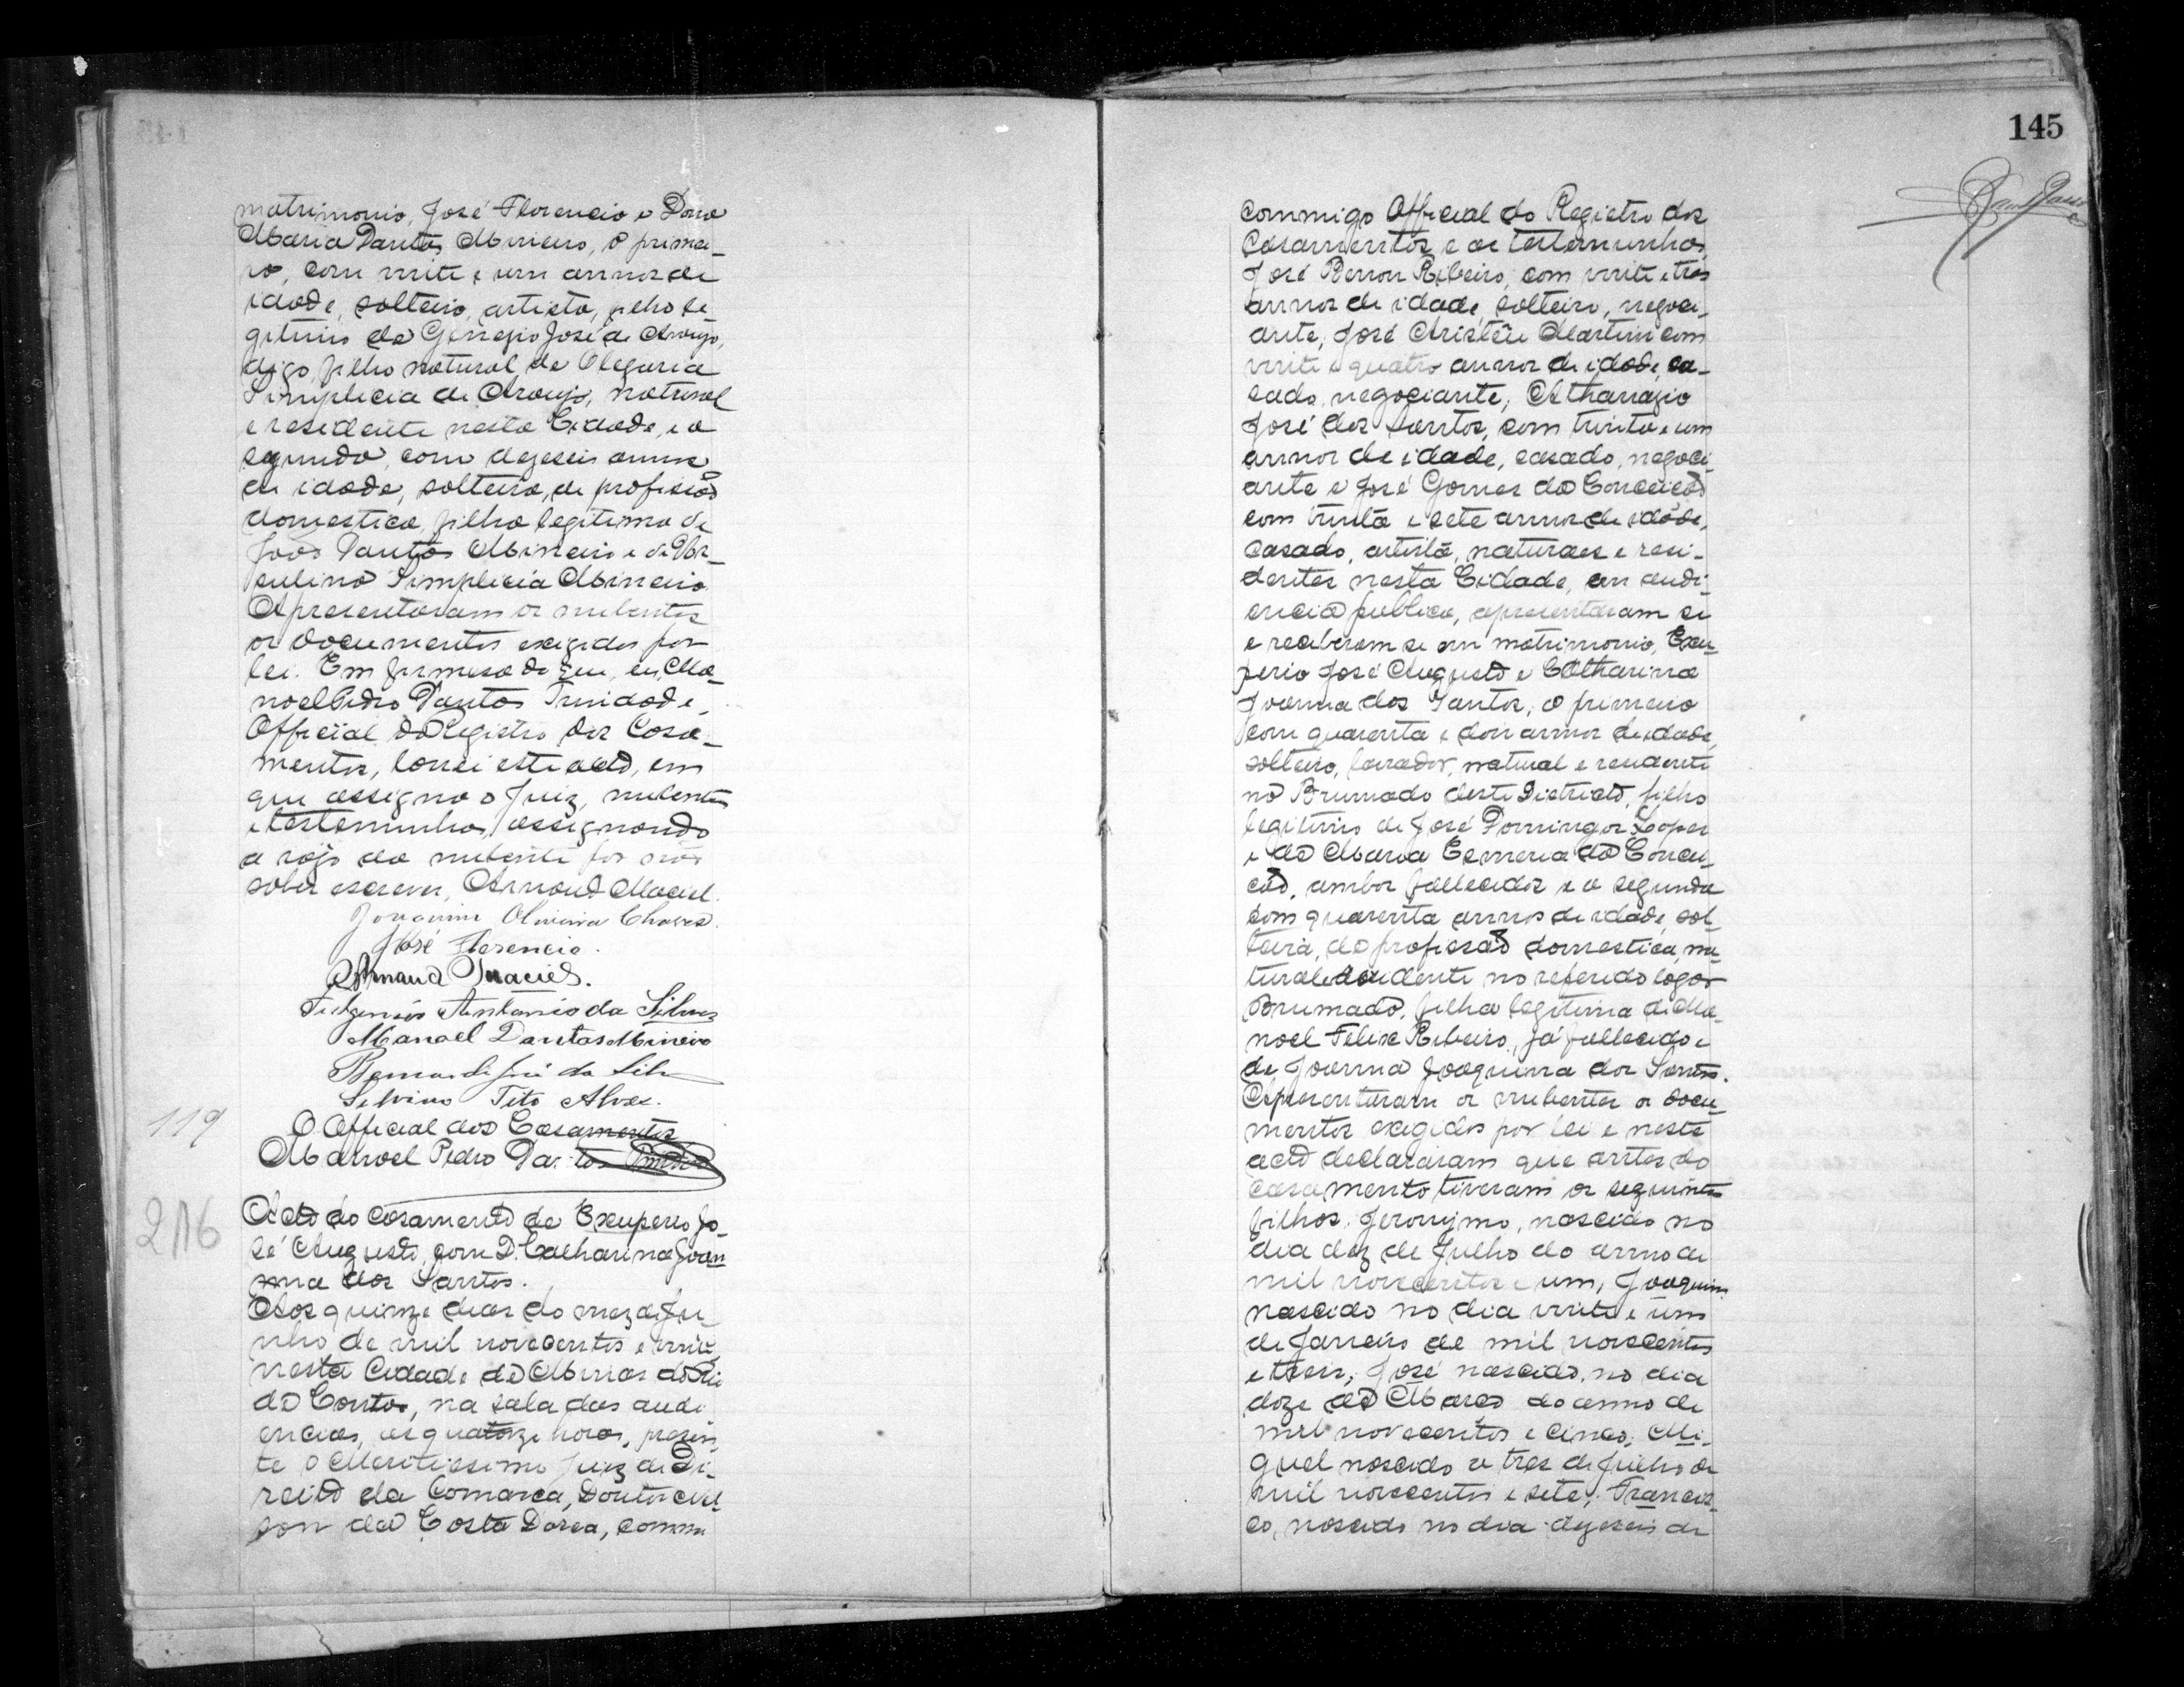 matrimonio, José Florencio e Dona
Maria Dantas Mineiro, o primei-
ro, com vinte e um annos de
idade, solteiro, artista, filho le-
gitimo de Genezio José de Araujo,
digo filho natural de Olegaria
Simplicia de Araujo, natural
e residente nesta Cidade, e a
segunda, com dezeseis annos
de idade, solteira, de profissão
domestica, filha legitima de
João Dantas Mineiro e de
Simplicia Mineiro.
Apresentaram os nubentes
os documentos exigidos por
lei. Em firmesa do que, eu, Ma-
noel Pedro Dantas Trindade,
Official do Registro dos Casa-
mentos, lavrei este acto, em
que assigna o Juiz, nubentes
e testemunhas, assignando
a rogo da nubente por não
saber escrever, Arnaud Maciel.
Joaquim Oliveira Chaves.
José Florencio.
Arnaud Maciel.
Fulgencio Antonio da Silva
Manoel Dantas Mineiro
José da Silva
Silvino Tito Alves.
119
O Official dos Casamentos
Manoel Pedro Dantas Trindade
216
Acto do casamento de Exuperio Jo-
sé Augusto, com D. Catharina Joan
na dos Santos.
Aos quinze dias do mez de Ju-
nho de mil novecentos e vinte
nesta Cidade de Minas do Rio
de Contas, na sala das audi
encias, as quatorze horas, presen
te o Meritissimo Juiz de Di-
reito da Comarca, Doutor
da Costa Dorea, commi
145
commigo Official do Registro dos
Casamentos e as testemunhas
José Ribeiro, com vinte e tres
annos de idade, solteiro, negoci-
ante, José Aristêu Martins com
vinte e quatro annos de idade, ca-
sado, negociante, Athanazio
José dos Santos, com trinta e um
annos de idade, casado, negoci-
ante e José Gomes da Conceição
com trinta e sete annos de idade,
casado, artista, naturaes e resi-
dentes nesta Cidade, em audi-
encia publica, apresentaram se
e receberam se em matrimonio, Exu-
perio José Augusto e Catharina
Joanna dos Santos, o primeiro
com quarenta e dois annos de idade,
solteiro, lavrador, natural e residente
no Brumado deste Districto, filho
legitimo de José Domingos Lopes
e de Maria Esmeria da Concei-
ção, ambos fallecidos e a segunda
com quarenta annos de idade, sol-
teira, de profissão domestica, na-
tural e residente no referido logar
Brumado, filha legitima de Ma-
noel Felix Ribeiro, já fallecido e
de Joanna Joaquina dos Santos.
Apresentaram os nubentes os docu-
mentos exigidos por lei e neste
acto declararam que antes do
casamento tiveram os seguintes
filhos. Jeronymo, nascido no
dia dez de Julho do anno de
mil novecentos e um, Joaquim
nascido no dia vinte e um
de Janeiro de mil novecentos
e treis; José nascido no dia
doze de Março do anno de
mil novecentos e cinco; Mi-
guel nascido a tres de Julho de
mil novecentos e sete; Francis-
co, nascido no dia dezeseis de